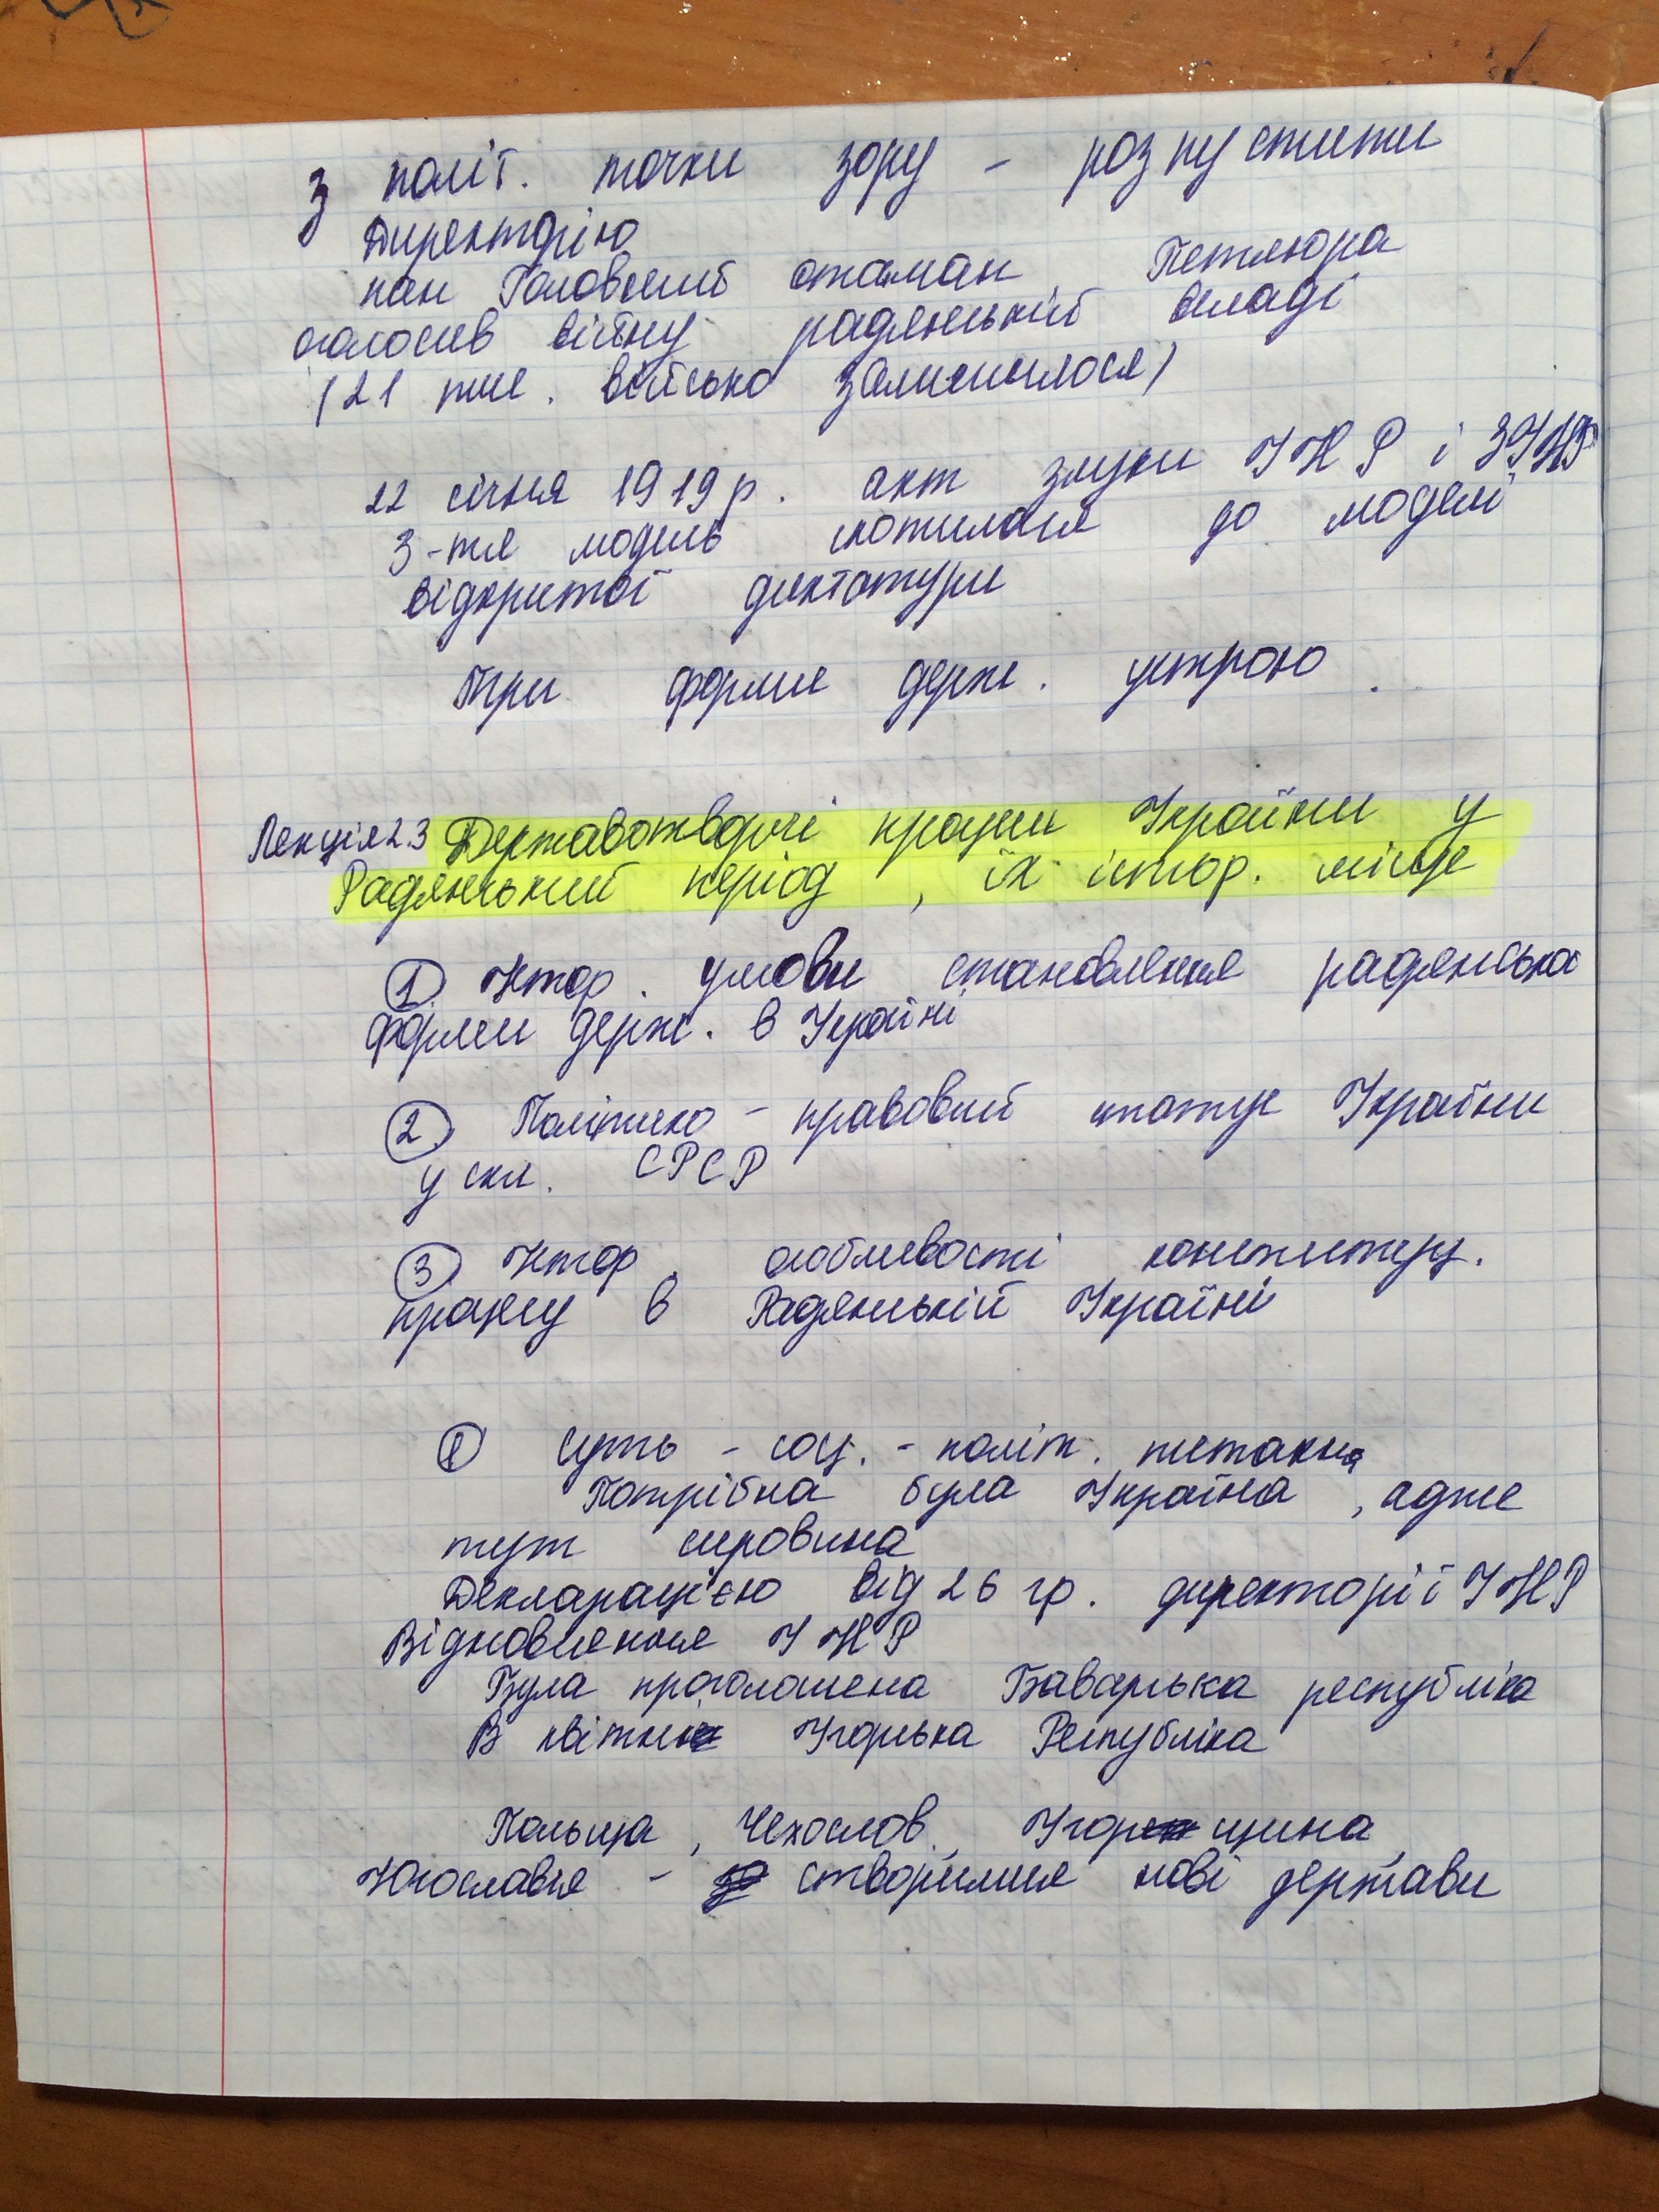 З політ. точки зору - розпустити
Директорію
пан Головний отаман Петлюра
оголосив війну радянській владі
(21 тис. військо залишилося)
22 січня 1919 р. акт злуки УНР і ЗУНР
3-тя модель скотилася до моделі
відкритої диктатури
Три форми держ. устрою.
Лекція 2.3 Державотворчі процеси України у
Радянський період, їх істор. місце
① Істор. умови становлення радянської
форми держ. в Україні
② Політико - правовий статус України
у скл. СРСР
③ Істор. особливості конституц.
процесу в Радянській Україні
① Суть - соц. - політ. питання
Потрібна була Україна, адже
тут сировина
Декларацією від 26 гр. директорії УНР
Відновлення УНР
Була проголошена Баварська республіка
В квітні Угорська Республіка
Польща, Чехослов., Угорщина,
Югославія - створилися нові держави